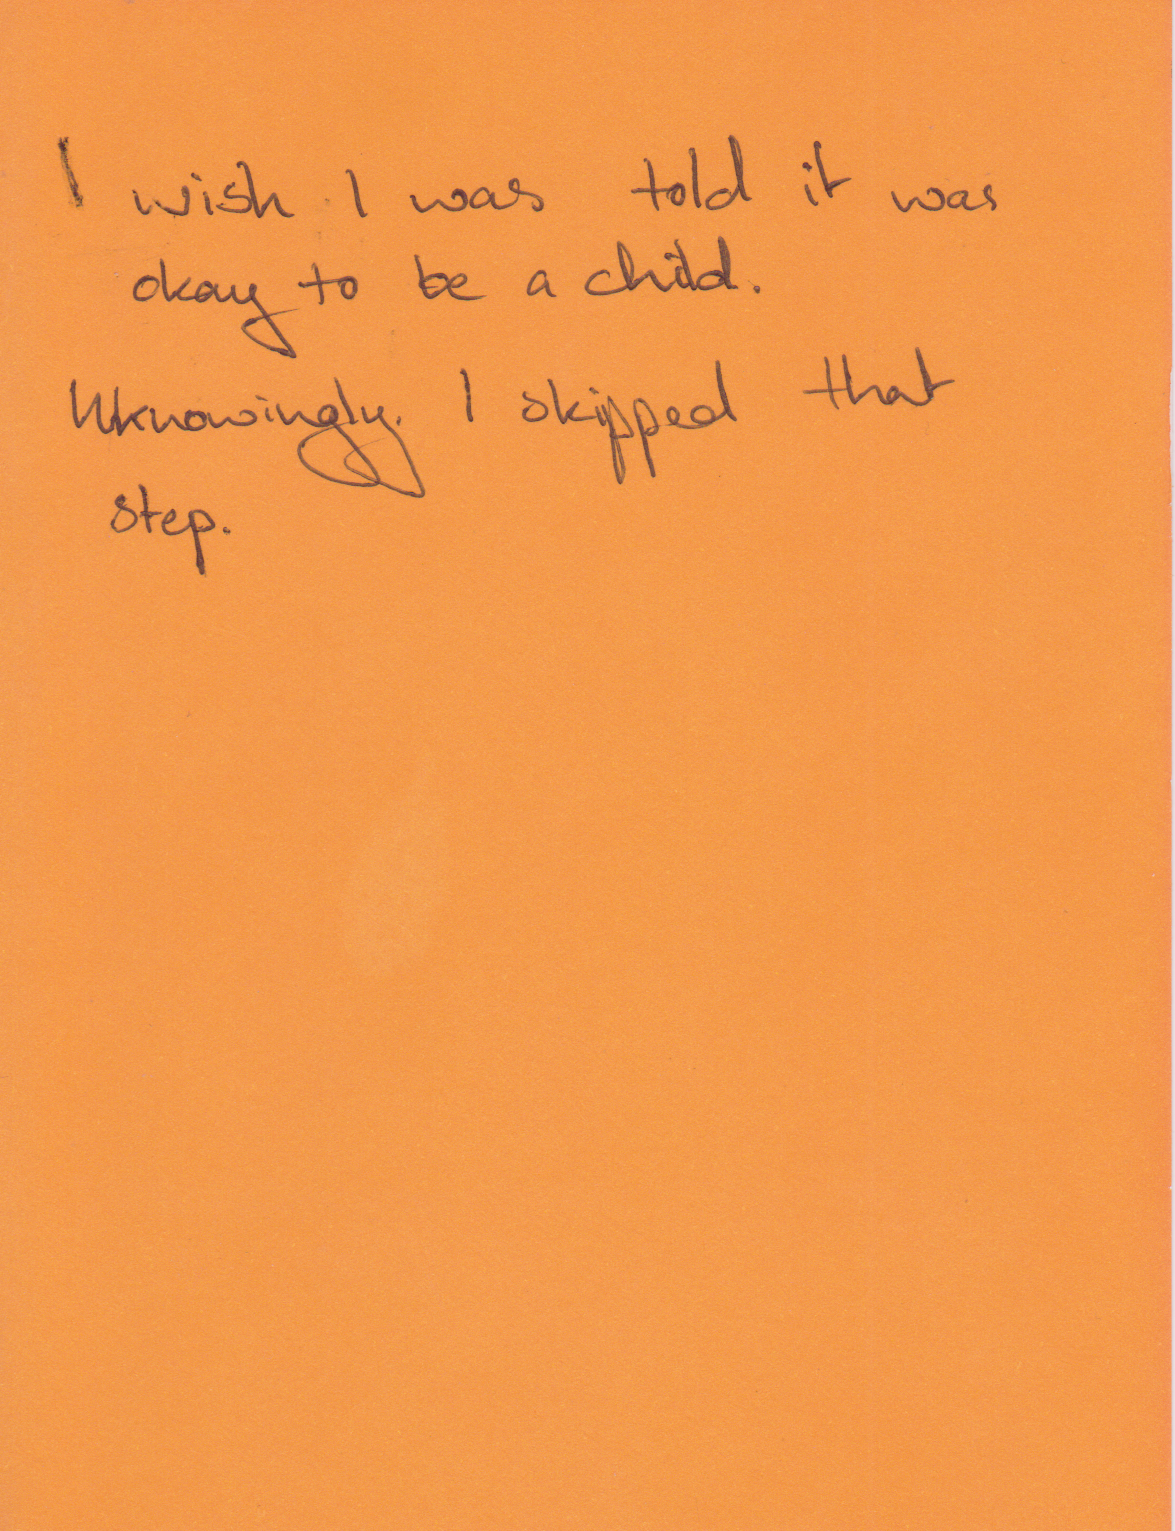 I wish I was told it was
okay to be a child.
Unknowingly. I skipped that
step.